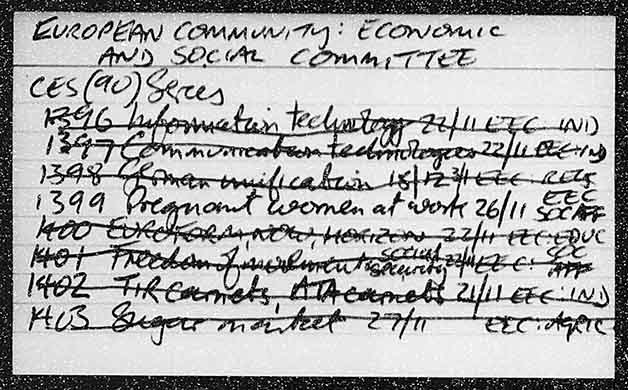 EUROPEAN COMMUNITY: ECONOMIC
AND SOCIAL COMMITTEE
CES(90) Series
1396 Information technology 22/11 EEC: IND
1397 Communication technologies 22/11 EEC: IND
1398 German unification EEC: RELS
1399 Pregnant women at work 26/11 EEC SOC AFF
1400 EUROFORM, NOW, HORIZON 22/11 EEC: EDUC
1401 Freedom of movement: social security /11 EEC: SOC AFF
1402 TIR carnets, ATA carnets 21/11 EEC: IND
1403 Sugar market 27/11 EEC: AGRIC